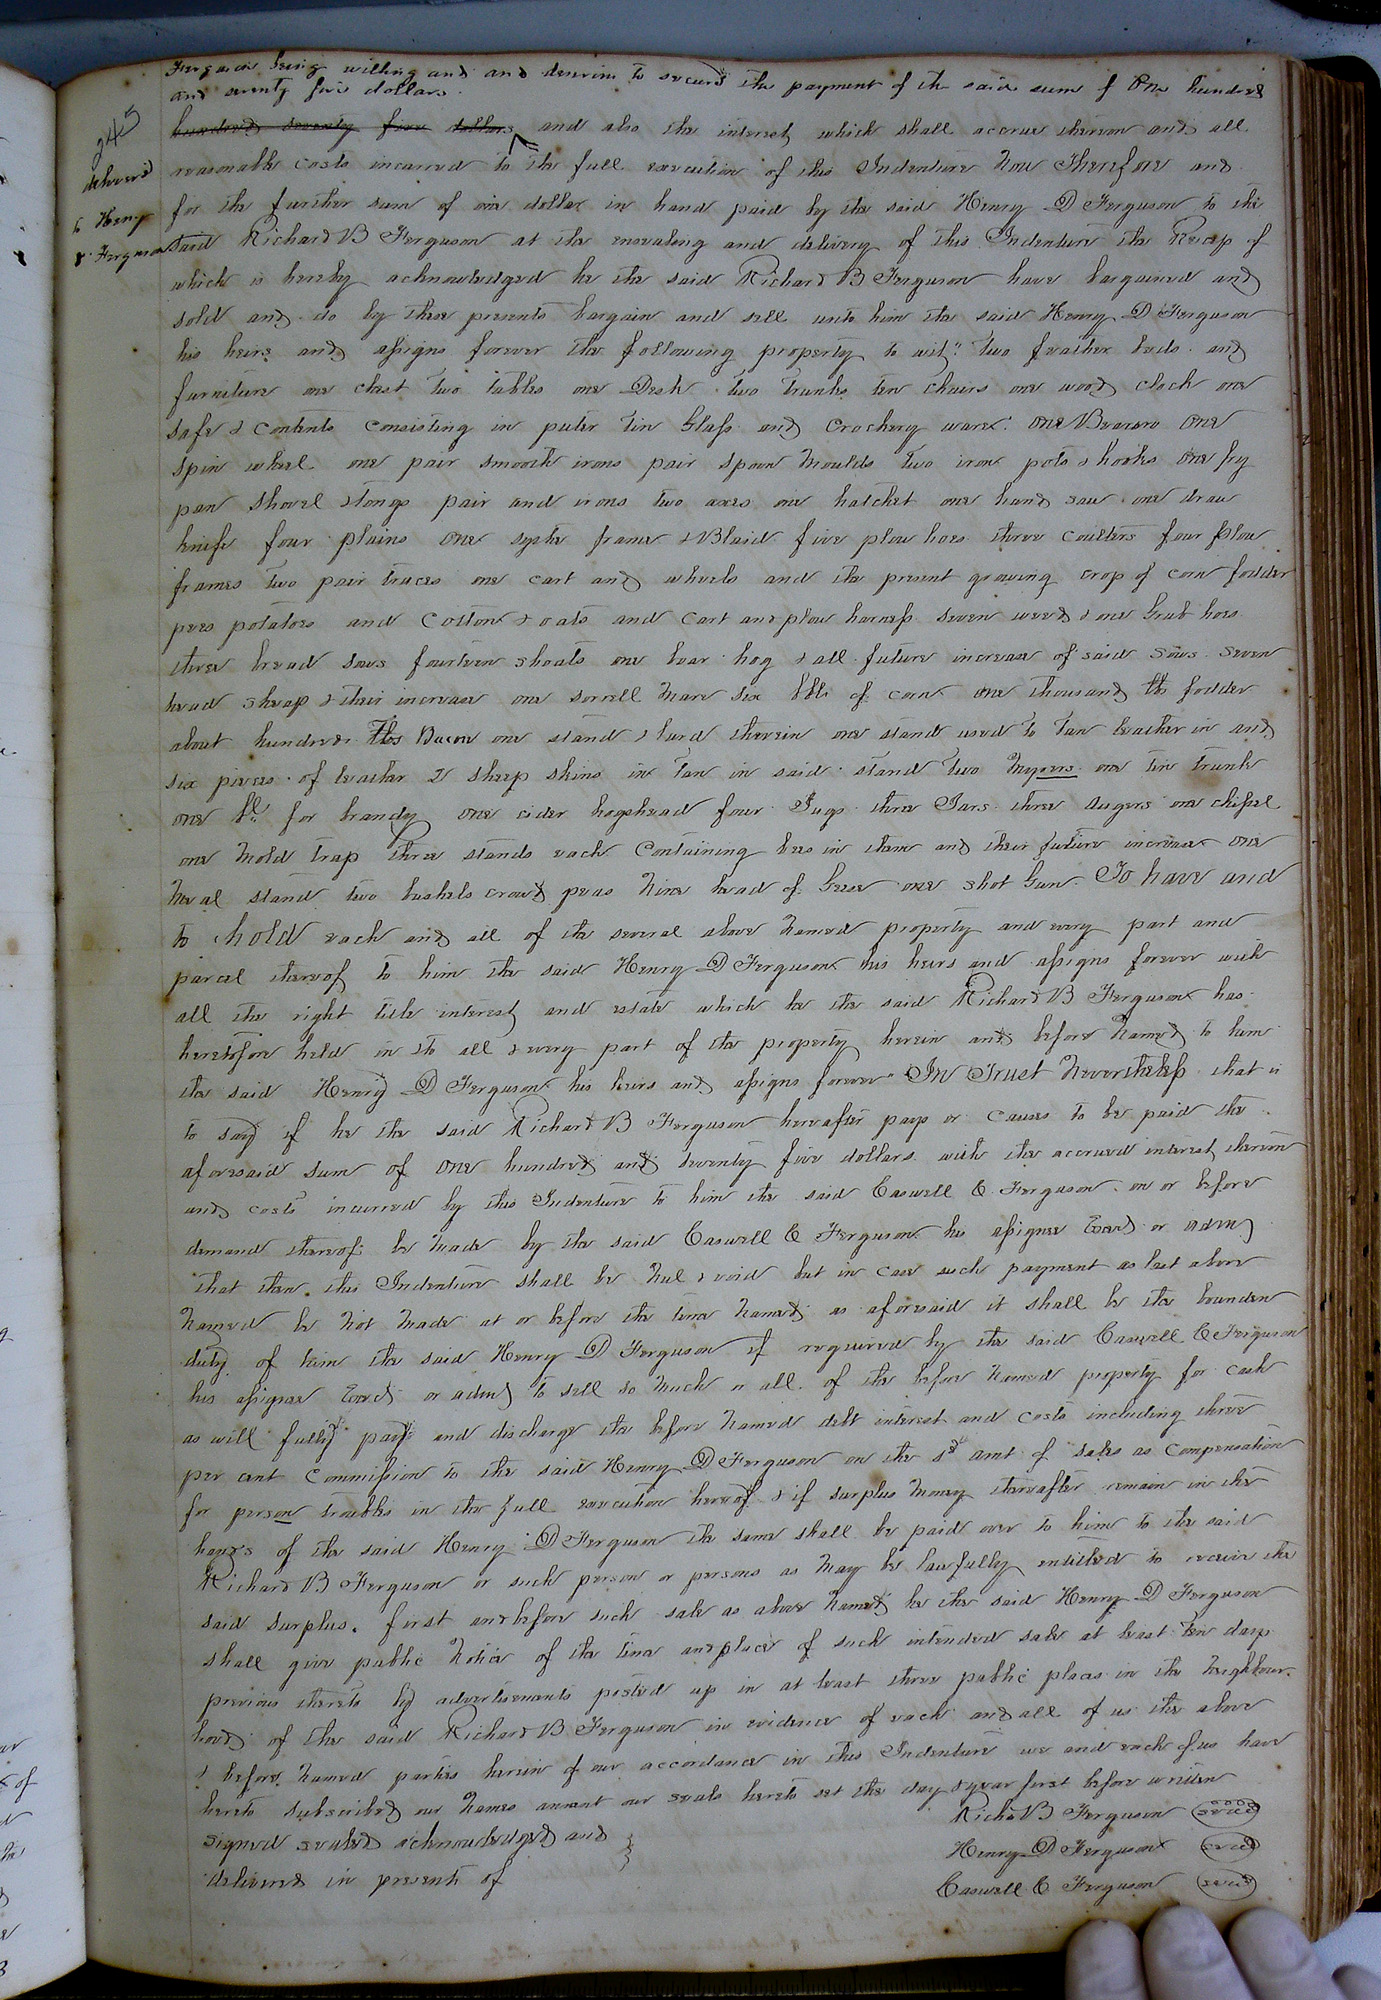 Ferguson being willing and and desirous to secure the payment of the said sum of One hundred
and seventy five dollars
245
delivered
to Henry
D Ferguson
hundred seventy five dollars and also the interest which shall accrue thereon and all
reasonable costs incurred to the full execution of this Indenture Now Therefore and
for the further sum of one dollar in hand paid by the said Henry D Ferguson to the
said Richard B Ferguson at the ensealing and delivery of this Indenture the Receip of
which is hereby acknowledged he the said Richard B Ferguson have bargained and
sold and do by these presents bargain and sell unto him the said Henry D Ferguson
his heirs and assigns forever the following property to wit: two feather beds and
furniture one chest two tables one Desk two trunks ten chairs one wood clock one
safe & contents consisting in puter tin Glass and Crockery ware one Beaurro one
spin wheel one pair smooth irons pair spoon moulds two iron pots & hooks one fry
pan shovel & tongs pair and irons two axes one hatchet one hand saw one draw
knife four plains one sythe frame & Blaid five plow hoes three coulters four plow
frames two pair traces one cart and wheels and the present growing crop of corn fodder
pees potatoes and Cotton & oats and Cart and plow harness seven weed & one Grub hoes
three bread sows fourteen shoats one boar hog & all future increase of said sows seven
head sheap & their increase one sorrell mare six bbls of corn one thousand lbs fodder
about hundred lbs Bacon one stand & lard therein one stand used to tan leather in and
six pieces of leather 2 sheep skins in tan in said stand two one tin trunk
one bbl for brandy one cider hogshead four Jugs three Jars three augers one chissel
one mold trap three stands each containing bees in them and their future increase one
meal stand two bushels crowd peas nine head of Geese one shot Gun To have and
to hold each and all of the several above named property and every part and
parcel thereof to him the said Henry D Ferguson his heirs and assigns forever with
all the right title interest and estate which he the said Richard B Ferguson has
heretofore held in & to all & every part of the property herein and before named to him
the said Henry D Ferguson his heirs and assigns forever In Trust Nevertheless that is
to say if he the said Richard B Ferguson hereafter pays or causes to be paid the
aforesaid sum of one hundred and seventy five dollars with the accrued interest thereon
and costs incurred by this Indenture to him the said Caswell C Ferguson on or before
demand thereof be made by the said Caswell C Ferguson his assignee Exed or admd
that then this Indenture shall be Nul & void but in case such payment as last above
named be not made at or before the time named as aforesaid it shall be the bounden
duty of him the said Henry D Ferguson if required by the said Caswell C Ferguson
his assignee Exed or admd to sell so much or all of the before named property for cash
as will fully pay and discharge the before named debt interest and costs including three
per cent Commission to the said Henry D Ferguson on the sd amt of sales as compensation
for person troubles in the full execution hereof & if surplus money thereafter remain in the
hands of the said Henry D Ferguson the same shall be paid over to him to the said
Richard B Ferguson or such person or persons as may be lawfully entitled to receive the
said surplus. first and before such sale as above named he the said Henry D Ferguson
shall give public notice of the time and place of such intended sale at least ten days
previous thereto by advertisements posted up in at least three public places in the neighbour-
hood of the said Richard B Ferguson in evidence of each and all of us the above
& before named parties herein of our accordance in this Indenture we and each of us have
hereto subscribed our names annext our seals hereto set the day & year first before written
Richd B Ferguson seal
signed sealed acknowledged and
Henry D Ferguson seal
delivered in presents of
Caswell C Ferguson seal